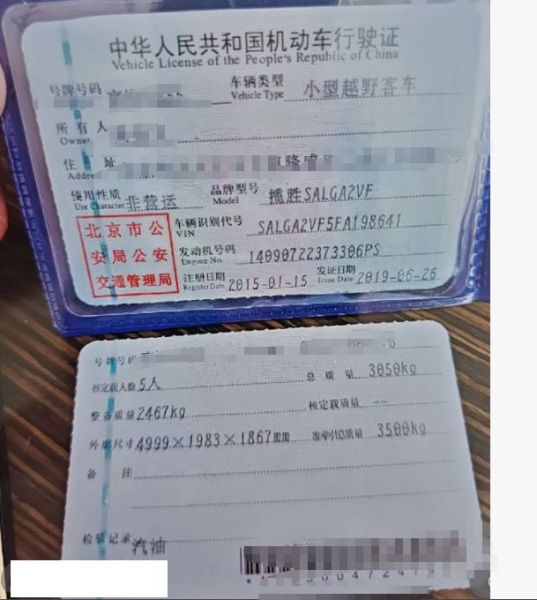 中华人民共和国机动车行驶证
Vehicle License of the People's Republic of China
号牌号码 车辆类型 小型越野客车
Vehicle Type
所有人
Owner
住 址
Address
使用性质 非营运 品牌型号 揽胜SALGA2VF
Use Character Model
北京市公安局公安交通管理局
车辆识别代号 SALGA2VF5FA198641
VIN
发动机号码 14090722373306PS
Engine No.
注册日期 2015-01-15 发证日期 2019-06-26
Register Date Issue Date
号牌号码
核定载人数 5人 总 质 量 3050kg
整备质量 2467kg 核定载质量 --
外廓尺寸 4999×1983×1867mm 准牵引总质量 3500kg
备 注
检验记录 汽油